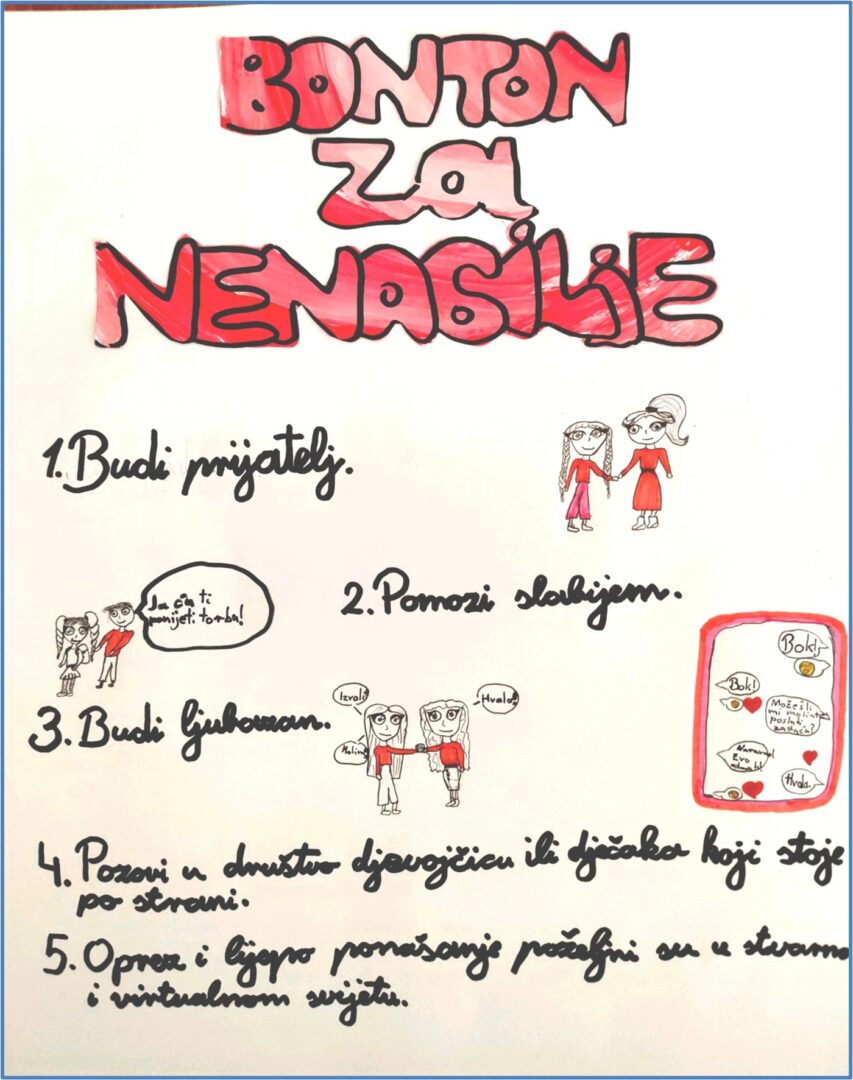 BONTON
ZA
NENASILJE
1. Budi prijatelj.
Ja ću ti
ponijeti torbu!
2. Pomozi slabijem.
3. Budi ljubazan.
Izvoli
Molim
Hvala!
Bok!
Bok!
Možeš li
mi molim te
poslati
zadaću?
Naravno!
Evo
odmah!
Hvala.
4. Pozovi u društvo djevojčicu ili dječaka koji stoje
po strani.
5. Oprez i lijepo ponašanje poželjni su u
i virtualnom svijetu.